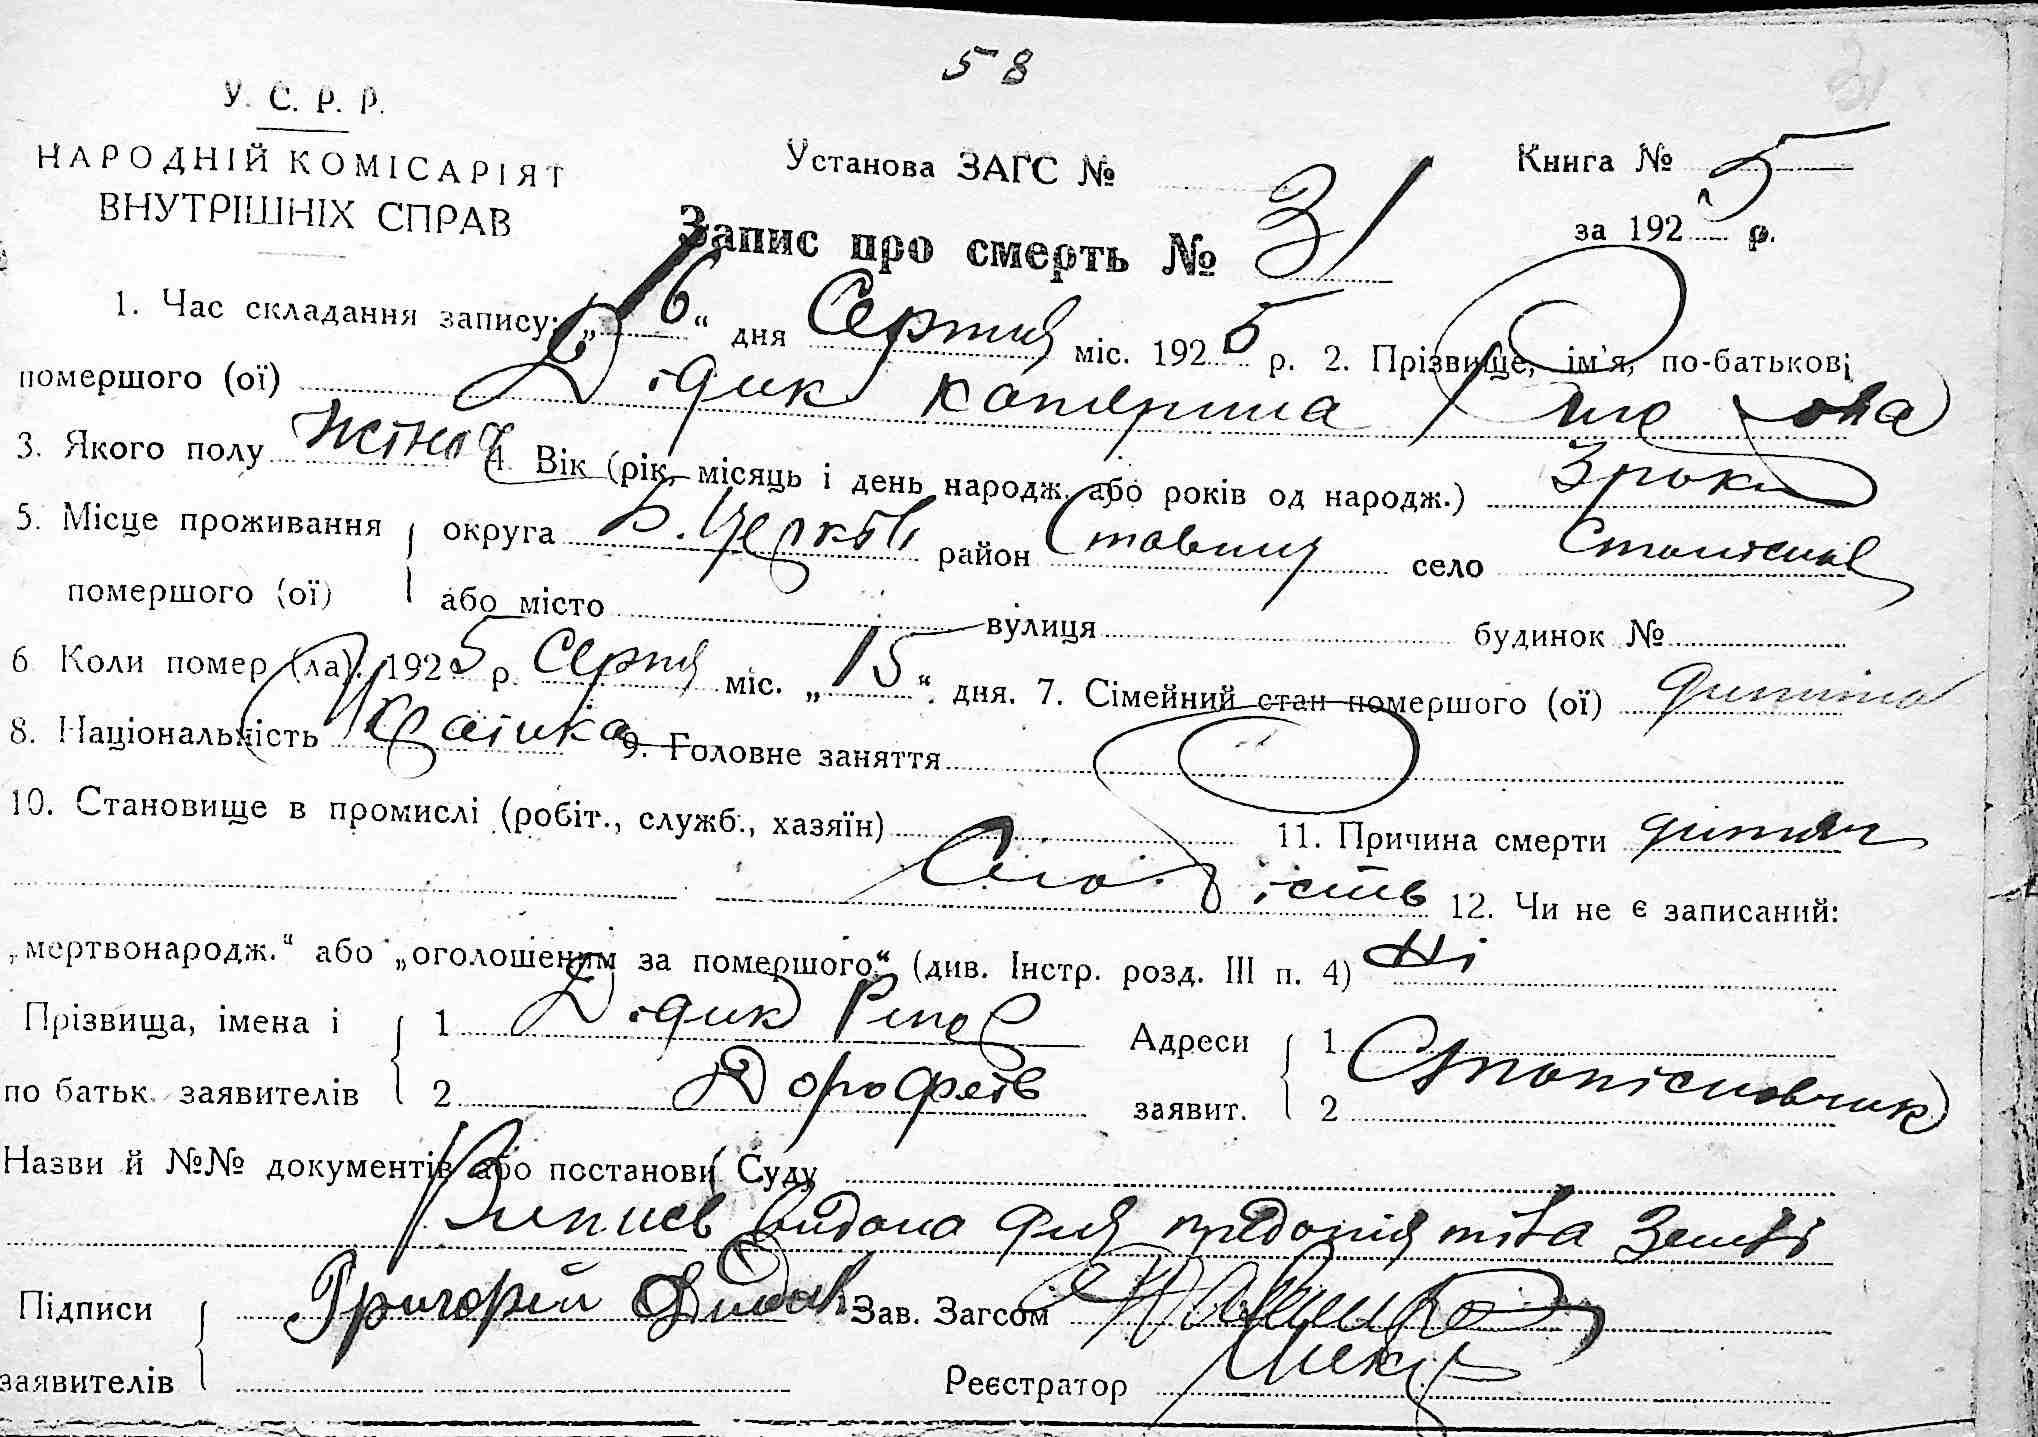 58
У. С. Р. Р.
НАРОДНІЙ КОМІСАРІЯТ
ВНУТРІШНІХ СПРАВ
Установа ЗАГС №
Книга № 5
за 1925 р.
Запис про смерть № 31
1. Час складання запису: „16“ дня Серпня міс. 1925 р. 2. Прізвище, ім'я, по-батькові
помершого (ої) Дідик Катерина
3. Якого полу жіноч 4. Вік (рік, місяць і день народж. або років од народж.) 3 роки
5. Місце проживання округа Б. Церків район Ставищ село
помершого (ої) або місто вулиця будинок №
6 Коли помер (ла): 1925 р. Серпня міс. „15“ дня. 7. Сімейний стан помершого (ої) дитина
8. Національність 9. Головне заняття
10. Становище в промислі (робіт., служб., хазяїн) 11. Причина смерти дитяч
слабість 12. Чи не є записаний:
„мертвонародж.“ або „оголошеним за помершого“ (див. Інстр. розд. III п. 4) Ні
Прізвища, імена і 1 Дідик Адреси 1
по батьк. заявителів 2 Дорофеїв заявит. 2
Назви й №№ документів або постанови Суду
Випись видана для тіла землі
Підписи Григорій Дидик Зав. Загсом
заявителів Реєстратор